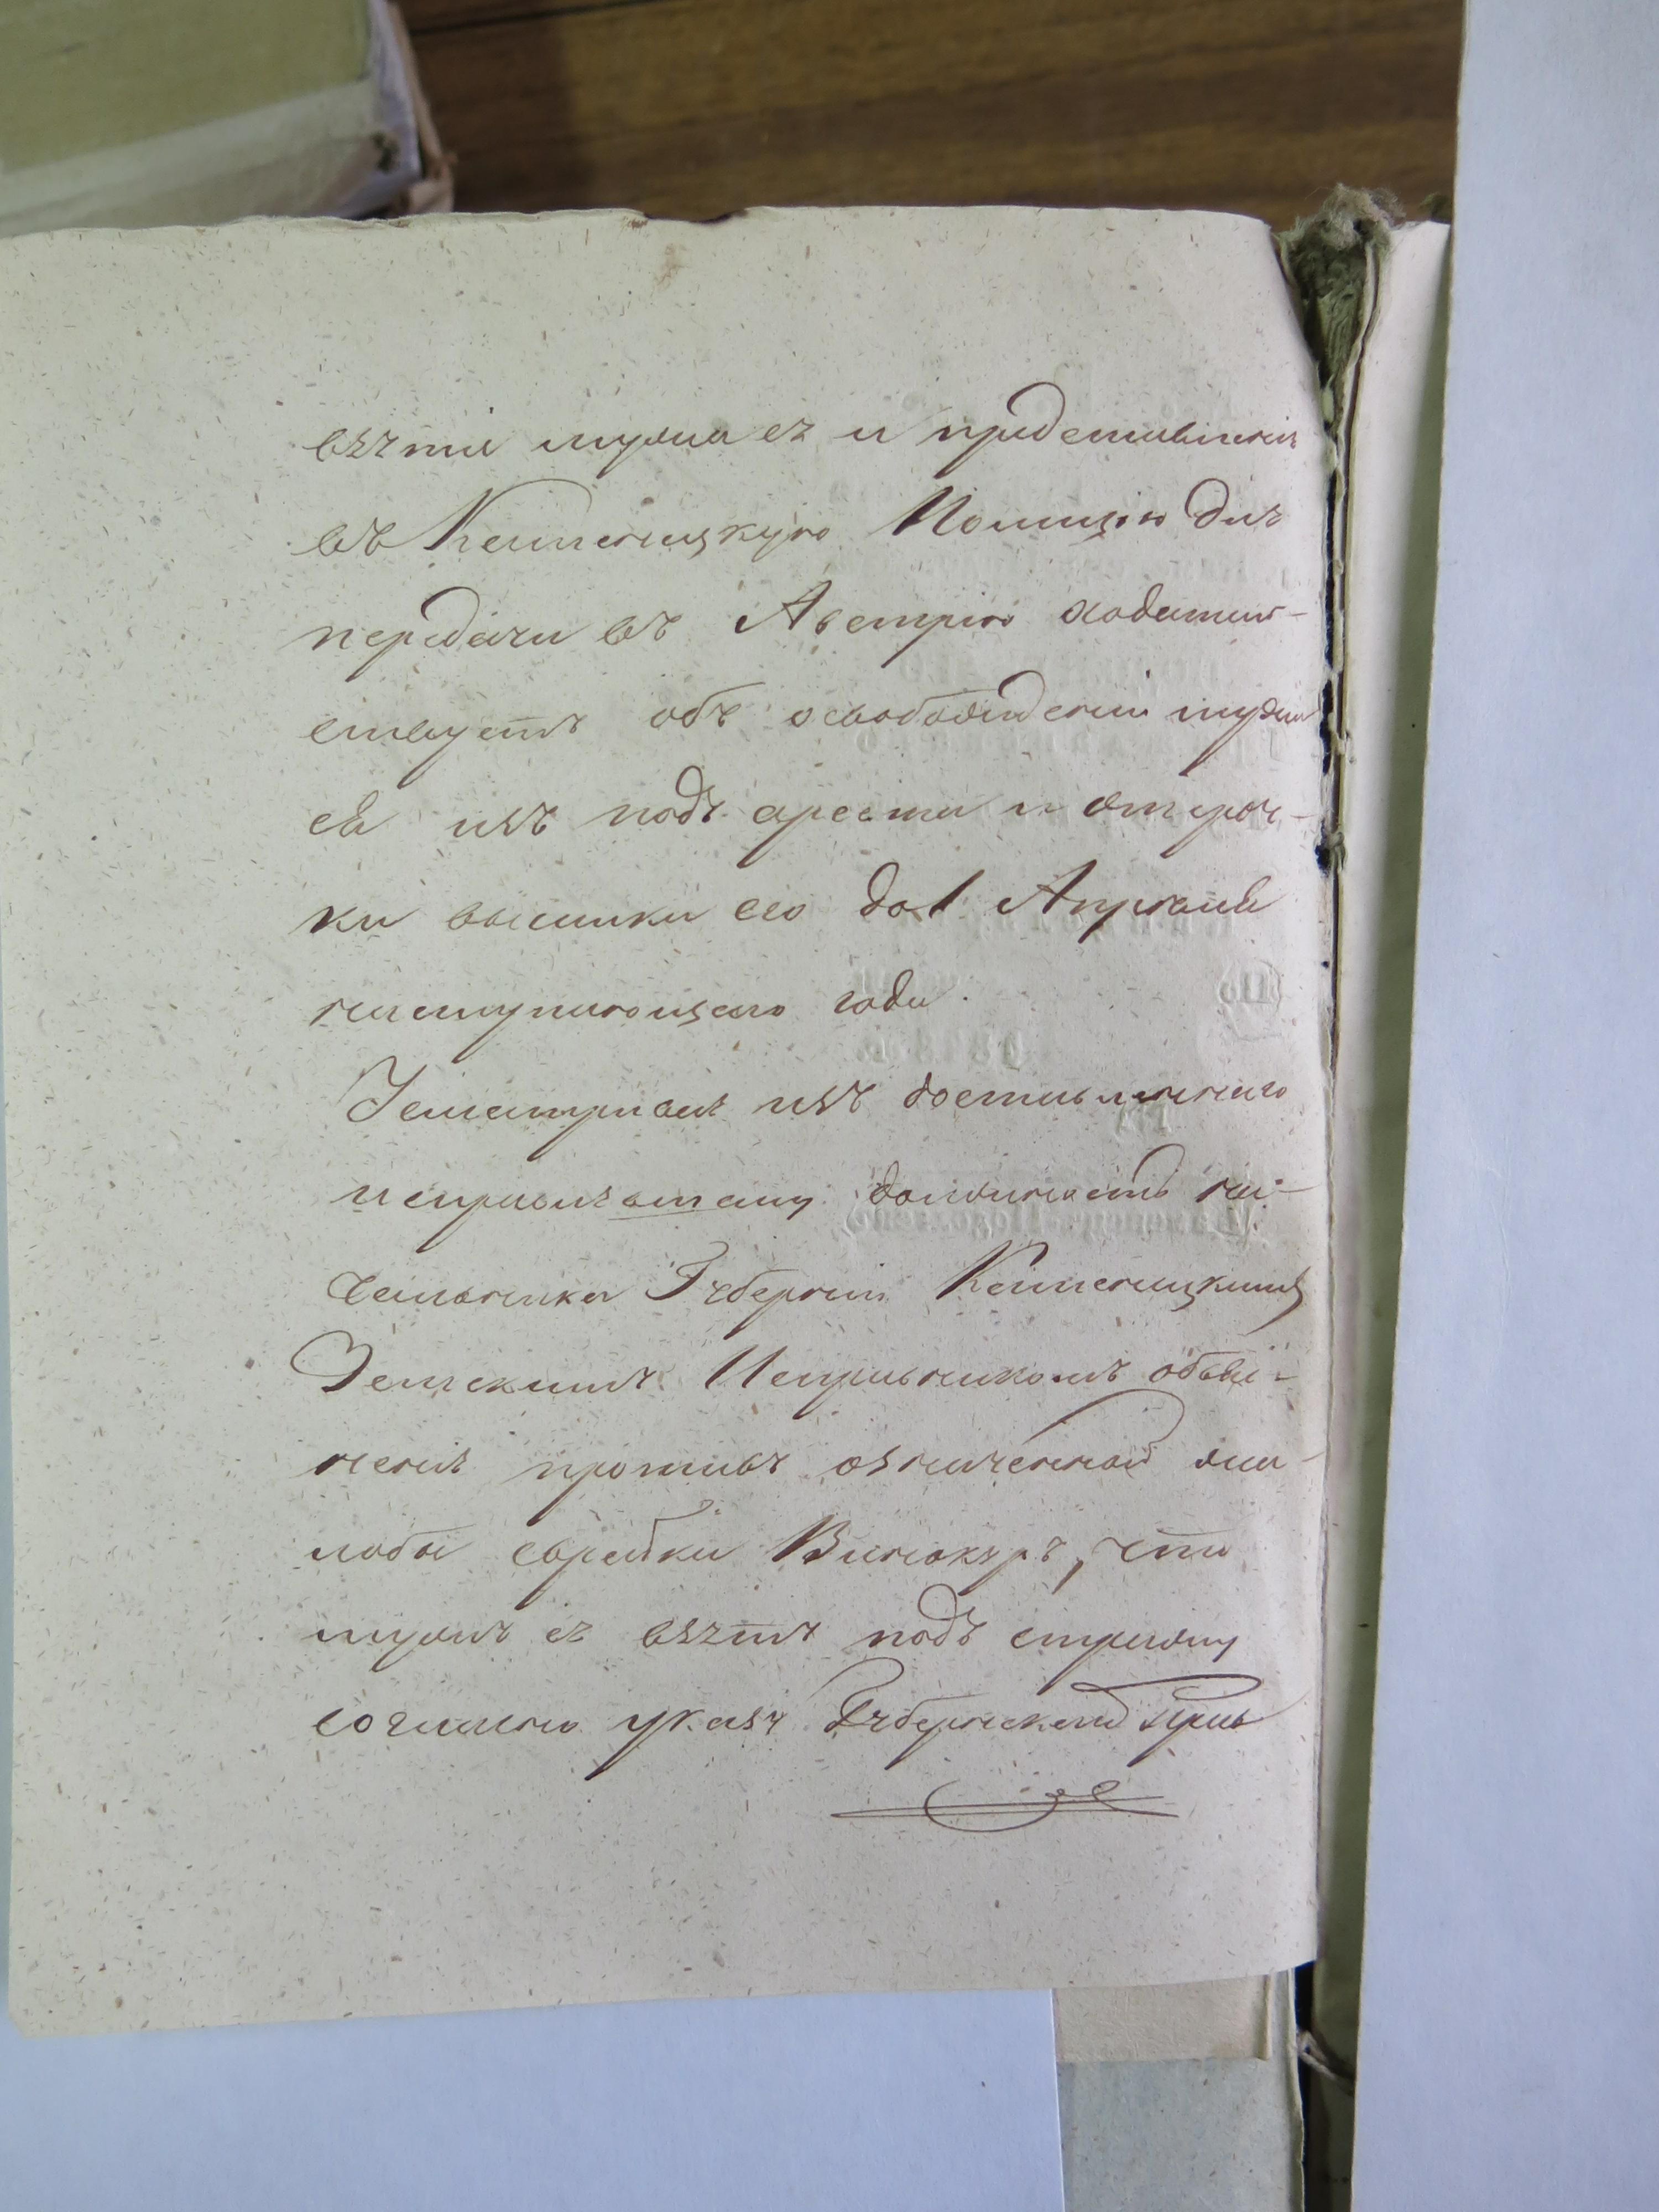 взятія мужа ея и представленія
въ Каменецкую Полицію для
передачи въ Австрію ходатай-
ствуетъ объ освобожденіи мужа
ея изъ подъ ареста и отсроч-
ки высылки его до 1 Апрѣля
наступающаго года.
Усматривая изъ доставленнаго
исправляющему должность на-
чальника Губерніи Каменецкимъ
Земскимъ Исправникомъ объяс-
ненія противъ означенной жа-
лобы еврейки Винокуръ, что
мужъ ея взятъ подъ стражу
согласно указу Губернскаго Прав